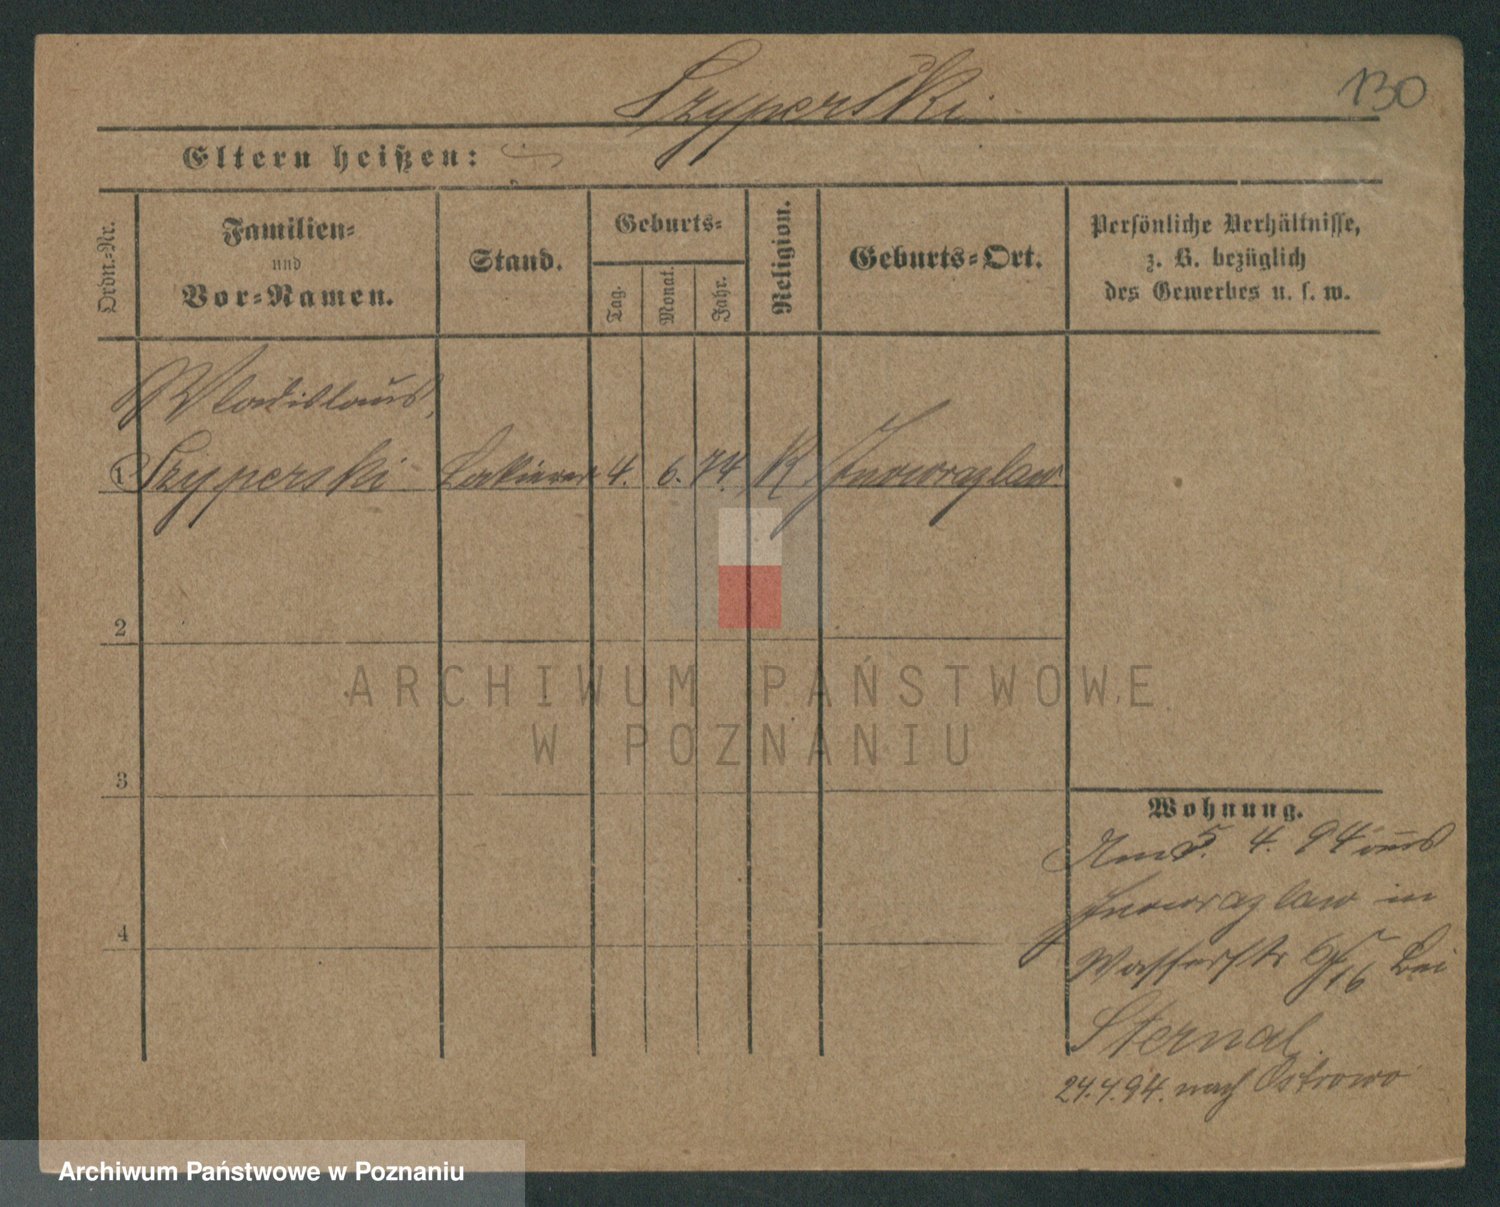 Szyperski
130
Eltern heißen:
Ordn.-Nr.
Familien-
und
Vor-Namen.
Stand.
Geburts-
Tag.
Monat.
Jahr.
Religion.
Geburts-Ort.
Persönliche Verhältnisse,
z. B. bezüglich
des Gewerbes u. s. w.
Wladislaus,
1 Szyperski Lakierer 4. 6. 74. K. Inowrazlaw
2
3
4
Wohnung.
Am 5. 4. 94 aus
Inowrazlaw in
Wasserstr bei
Sternal.
24.4.94. nach Ostrowo
ARCHIWUM PAŃSTWOWE
W POZNANIU
Archiwum Państwowe w Poznaniu